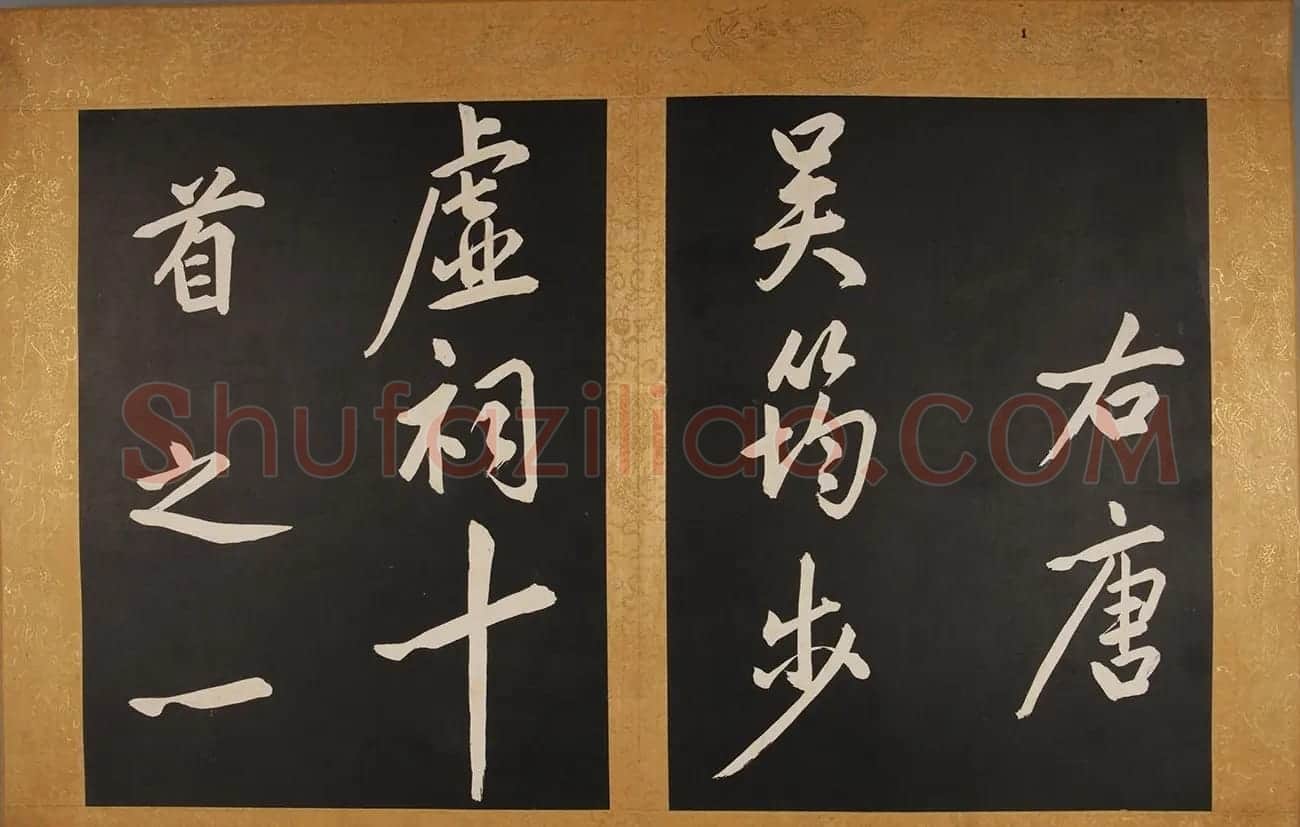 右唐
吴筠步
虚祠十
首之一
Shufaziliao.COM